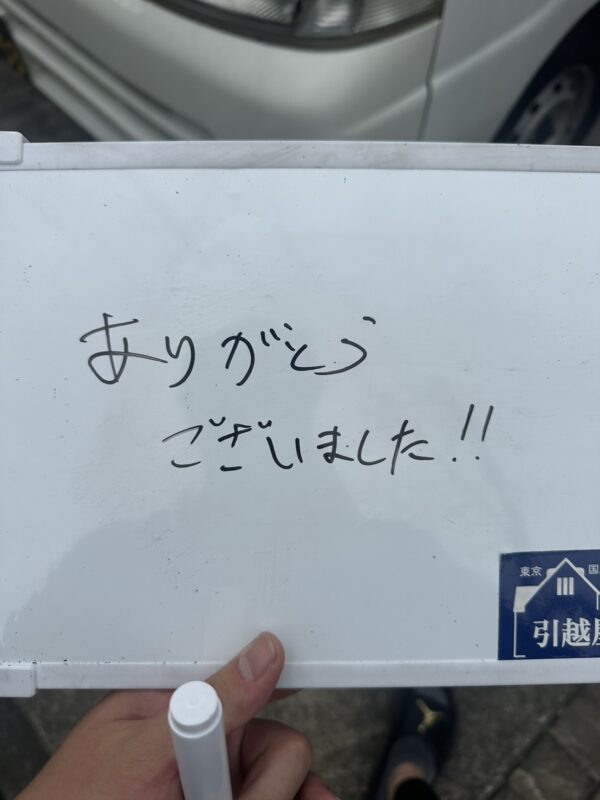 ありがとう
ございました!!
東京 国
引越